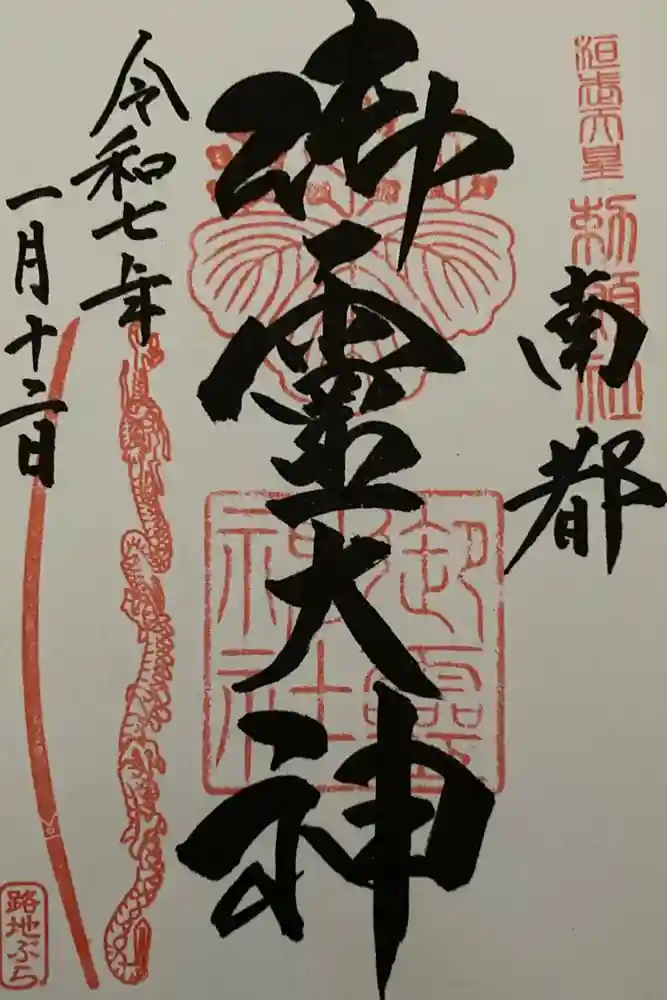 桓武天皇
勅願社
南都
御霊大神
御霊神社
令和七年
一月十二日
路地ぶら